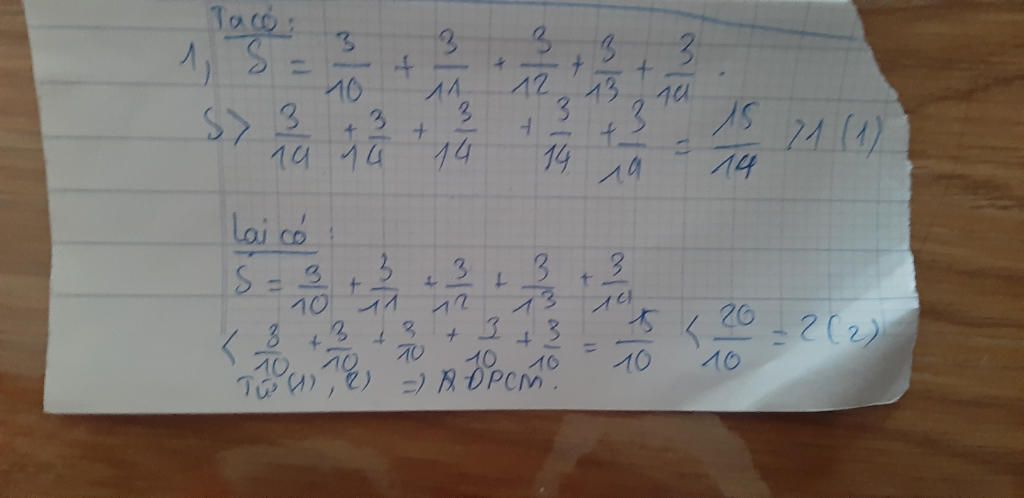 Ta có:
1, S = 3/10 + 3/11 + 3/12 + 3/13 + 3/14 .
S > 3/14 + 3/14 + 3/14 + 3/14 + 3/14 = 15/14 > 1 (1)
Lại có :
S = 3/10 + 3/11 + 3/12 + 3/13 + 3/14
< 3/10 + 3/10 + 3/10 + 3/10 + 3/10 = 15/10 < 20/10 = 2 (2)
Từ (1), 2) => ĐPCM.